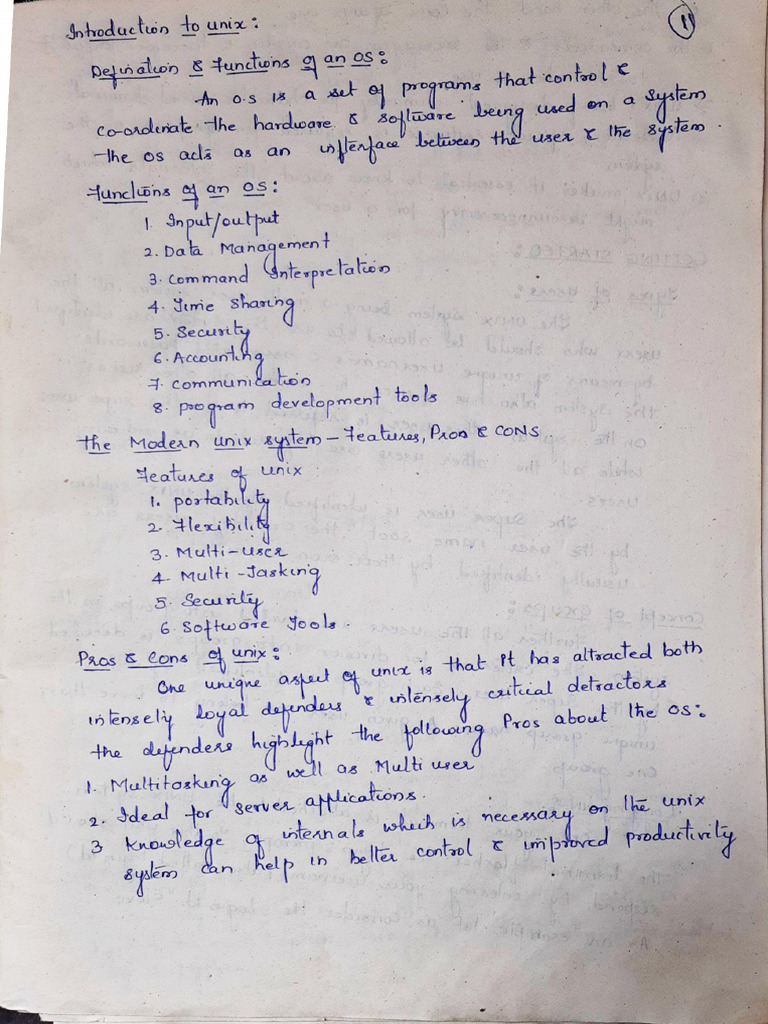 11
Introduction to unix:
Defination & Functions of an OS:
An O.S is a set of programs that control &
co-ordinate the hardware & software being used on a system
the OS acts as an interface between the user & the system.
Functions of an OS:
1. Input/output
2. Data Management
3. Command Interpretation
4. Time Sharing
5. Security
6. Accounting
7. Communication
8. program development tools
The Modern unix system - Features, Pros & CONS
Features of unix
1. portability
2. Flexibility
3. Multi-user
4. Multi-Tasking
5. Security
6. Software Tools.
Pros & Cons of unix:
One unique aspect of unix is that it has attracted both
intensely loyal defenders & intensely critical detractors
the defenders highlight the following Pros about the OS:
1. Multitasking as well as Multi user
2. Ideal for server applications.
3 Knowledge of internals which is necessary on the unix
system can help in better control & improved productivity